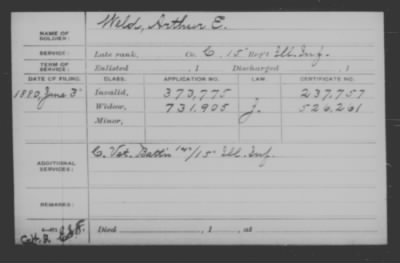 NAME OF SOLDIER: Weld, Arthur E.
SERVICE: Late rank, Co. C, 15 Reg't Ill. Inf.
TERM OF SERVICE: Enlisted , 1 Discharged , 1
DATE OF FILING. CLASS. APPLICATION NO. LAW. CERTIFICATE NO.
1880, June 3 Invalid, 373,775 237,757
Widow, 731,905 J. 526,261
Minor,
ADDITIONAL SERVICES: C. Vet. Batt'n 14&/15 Ill. Inf.
REMARKS:
Died , 1 , at